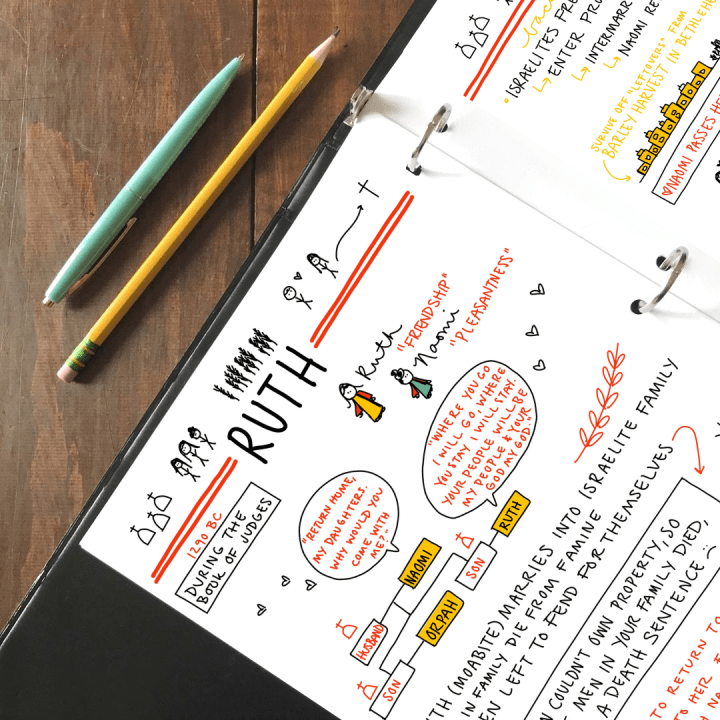 RUTH
1290 BC
DURING THE
BOOK OF JUDGES
Ruth
"FRIENDSHIP"
Naomi
"PLEASANTNESS"
"RETURN HOME,
MY DAUGHTERS.
WHY WOULD YOU
COME WITH
ME?"
"WHERE YOU GO
I WILL GO, WHERE
YOU STAY I WILL STAY.
YOUR PEOPLE WILL BE
MY PEOPLE & YOUR
GOD MY GOD."
NAOMI
HUSBAND
ORPAH
SON
SON
RUTH
(MOABITE) MARRIES INTO ISRAELITE FAMILY
IN FAMILY DIE FROM FAMINE
LEFT TO FEND FOR THEMSELVES
COULDN'T OWN PROPERTY, SO
MEN IN YOUR FAMILY DIED,
A DEATH SENTENCE
RETURN TO
TO HER
ISRAELITES
ENTER
INTERMARR
NAOMI
SURVIVE OFF "LEFTOVERS" FROM
BARLEY HARVEST IN BETHLEHE
NAOMI PASSES